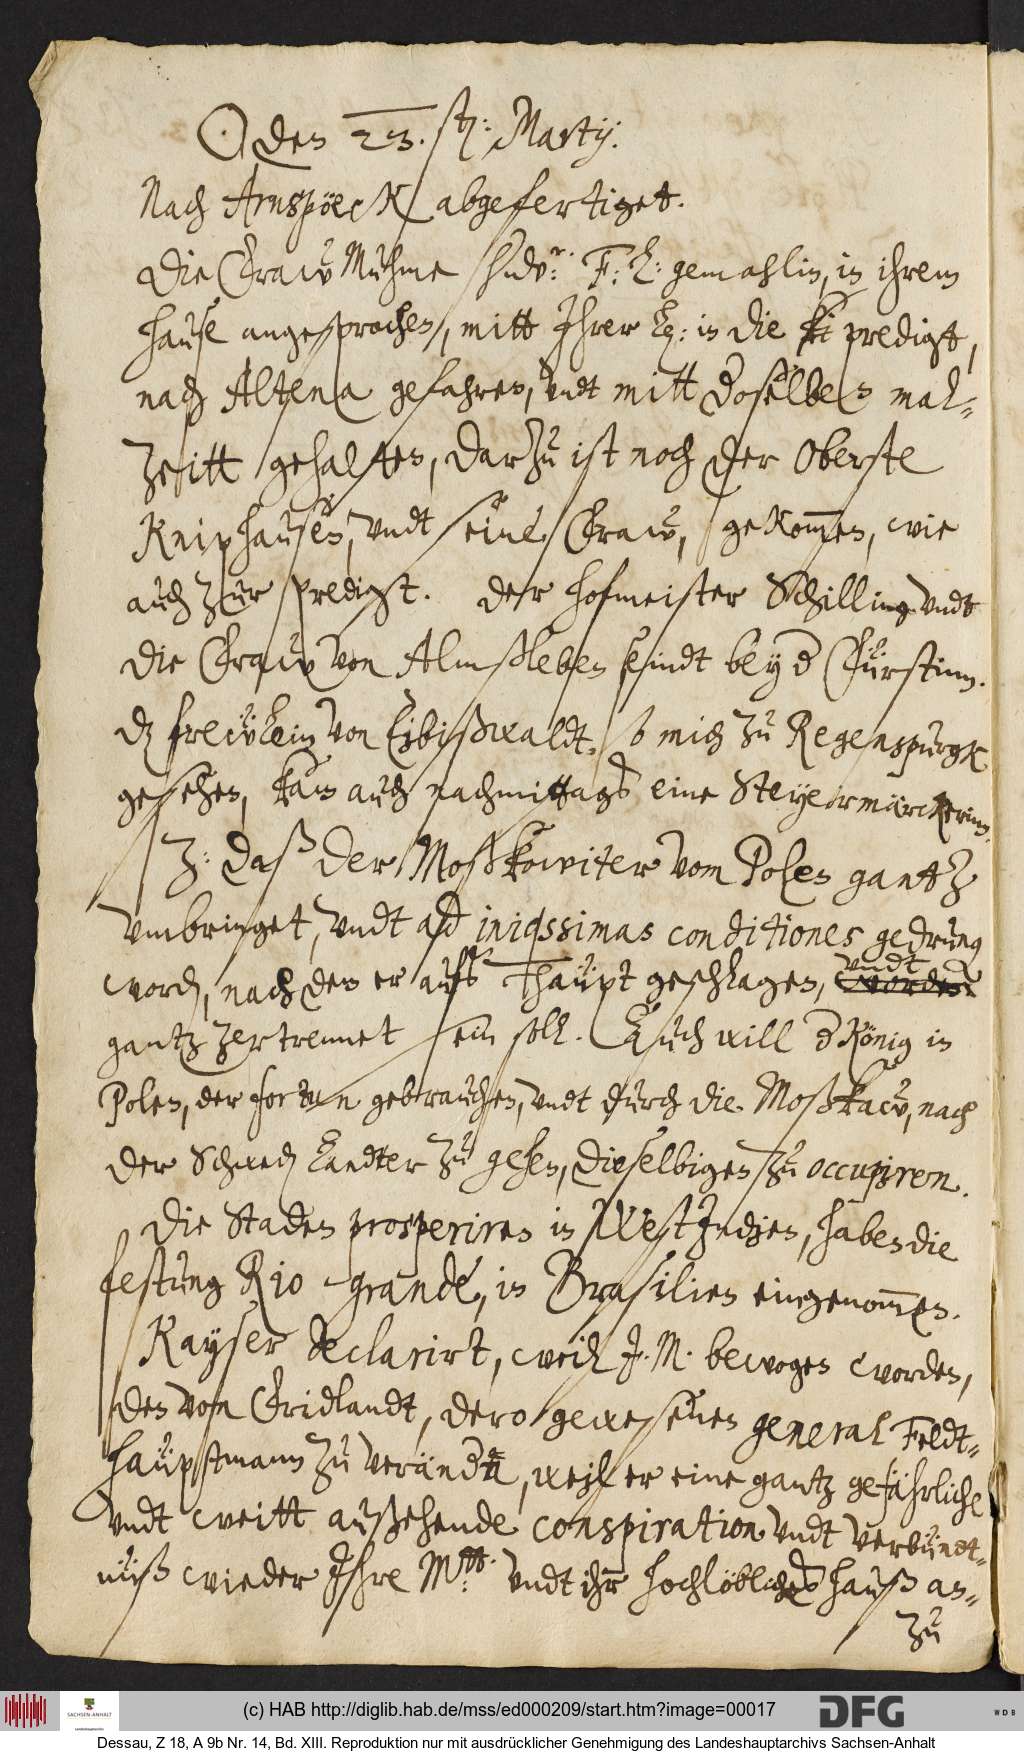 ☉ den 23. st: Martij.
Nach Arnspöeck abgefertiget.
Die Fraw Muhme F: L: gemahlin, in ihrem
hause angesprochen, mitt Ihrer L: in die predigt,
nach Altena gefahren, undt mitt Doselbes mal=
zeitt gehalten, darzu ist noch der Oberste
Kniphausen, undt seine Fraw, gekom̅en, wie
auch zur predigt. Der hofmeister Schilling undt
die Fraw von Almßleben seindt bey d Fürstinn.
dz frewlein von Eibißwaldt. so mich zu Regenspurgk
gesehen, kam auch nachmittags eine Steyermärckerinn.
Z: daß der Moßkowiter vom Polen gantz
umbringet, undt ad iniqssimas conditiones gedrung
word, nach dem er aufs haüpt geschlagen, undt worden
gantz zertrennet sein soll. Auch will d König in
Polen, der fortun gebrauchen, undt durch die Moßkaw, nach
der Schwed Landter zu gehen, dieselbigen zu occupiren.
Die Staden prosperiren in West Indien, haben die
festung Rio grande, in Brasilien eingenom̅en.
Kayser declarirt, weil I. M. bewogen worden,
den von Fridlandt, dero gewesenen general Feldt=
haüptmann zu veränd, weil er eine gantz gefährliche
undt weitt außehende conspiration undt verbündt=
nüß wieder Ihre Mtt: undt ihr hochlöbliches hauß an=
zu
(c) HAB http://diglib.hab.de/mss/ed000209/start.htm?image=00017
SACHSEN-ANHALT
DFG
WDB
Dessau, Z 18, A 9b Nr. 14, Bd. XIII. Reproduktion nur mit ausdrücklicher Genehmigung des Landeshauptarchivs Sachsen-Anhalt